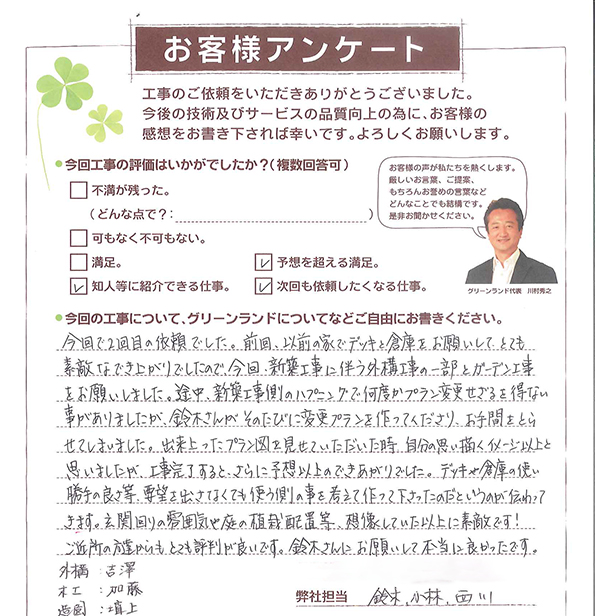 お客様アンケート
工事のご依頼をいただきありがとうございました。
今後の技術及びサービスの品質向上の為に、お客様の
感想をお書き下されば幸いです。よろしくお願いします。
今回工事の評価はいかがでしたか?(複数回答可)
不満が残った。
(どんな点で?: )
可もなく不可もない。
満足。
予想を超える満足。
知人等に紹介できる仕事。
次回も依頼したくなる仕事。
お客様の声が私たちを熱くします。
厳しいお言葉、ご提案、
もちろんお誉めの言葉など
どんなことでも結構です。
是非お聞かせください。
グリーンランド代表 川村秀之
今回の工事について、グリーンランドについてなどご自由にお書きください。
今回で2回目の依頼でした。前回、以前の家でデッキと倉庫をお願いして、とても
素敵なでき上がりでしたので、今回、新築工事に伴う外構工事の一部とガーデン工事
をお願いしました。途中、新築工事側のハプニングで何度かプラン変更せざるを得ない
事がありましたが、鈴木さんがそのたびに変更プランを作ってくださり、お手間をとら
せてしまいました。出来上ったプラン図を見せていただいた時、自分の思い描くイメージ以上と
思いましたが、工事完了すると、さらに予想以上のできあがりでした。デッキや倉庫の使い
勝手の良さ等、要望を出さなくても使う側の事を考えて作って下さったのだというのが伝わって
きます。玄関回りの雰囲気や庭の植栽配置等、想像していた以上に素敵です!
ご近所の方達からもとても評判が良いです。鈴木さんにお願いして本当に良かったです。
外構:吉澤
木工:加藤
造園:填上
弊社担当 鈴木、小林、西川